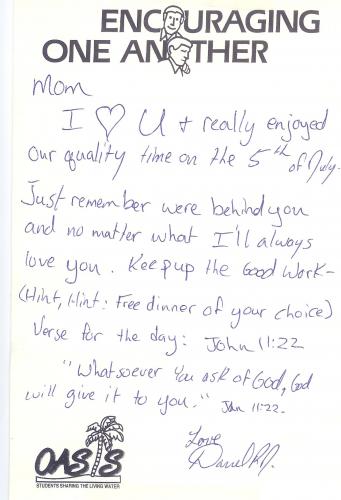 ENCOURAGING
ONE ANOTHER
Mom
I ♡ U + really enjoyed
our quality time on the 5th of July.
Just remember were behind you
and no matter what I'll always
love you. Keep up the Good Work -
(Hint, Hint: Free dinner of your choice)
Verse for the day: John 11:22
"Whatsoever you ask of God, God
will give it to you." John 11:22.
Love
OASIS
STUDENTS SHARING THE LIVING WATER